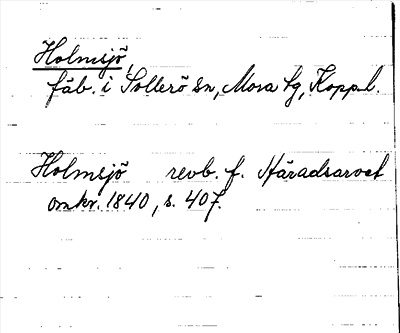 Holmsjö,
fäb. i Sollerö sn, Mora tg, Kopp.l.
Holmsjö revb. f. Häradsarvet
omkr. 1840, s. 407.